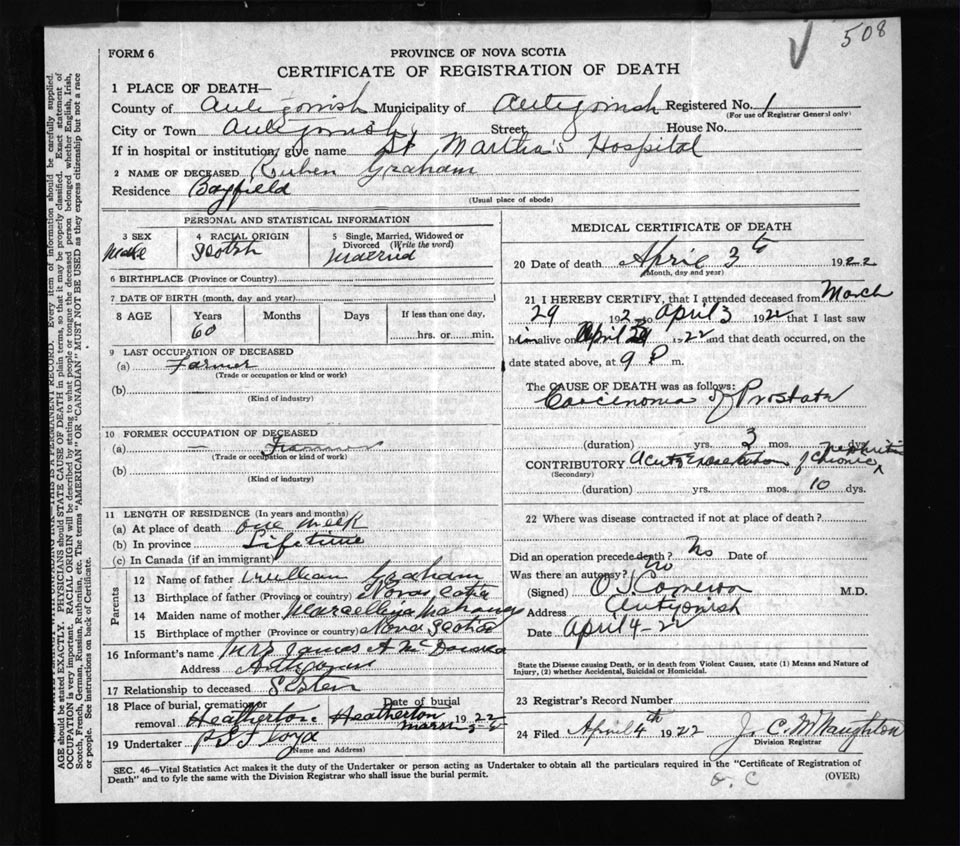 508
FORM 6
PROVINCE OF NOVA SCOTIA
CERTIFICATE OF REGISTRATION OF DEATH
1 PLACE OF DEATH—
County of Antigonish Municipality of Antigonish Registered No. 1
(For use of Registrar General only)
City or Town Antigonish Street House No.
If in hospital or institution, give name St Martha's Hospital
2 NAME OF DECEASED Reuben Graham
Residence Bayfield
(Usual place of abode)
PERSONAL AND STATISTICAL INFORMATION
3 SEX
Male
4 RACIAL ORIGIN
Scotsh
5 Single, Married, Widowed or Divorced (Write the word)
Married
6 BIRTHPLACE (Province or Country)
7 DATE OF BIRTH (month, day and year)
8 AGE Years Months Days If less than one day,
60 hrs. or min.
9 LAST OCCUPATION OF DECEASED
(a) Farmer
(Trade or occupation or kind or work)
(b)
(Kind of industry)
10 FORMER OCCUPATION OF DECEASED
(a)
(Trade or occupation or kind or work)
(b)
(Kind of industry)
11 LENGTH OF RESIDENCE (In years and months)
(a) At place of death one week
(b) In province Lifetime
(c) In Canada (if an immigrant)
Parents
12 Name of father William Graham
13 Birthplace of father (Province or country) Nova Scotia
14 Maiden name of mother
15 Birthplace of mother (Province or country) Nova Scotia
16 Informant's name Mrs James A
Address Antigonish
17 Relationship to deceased Sister
18 Place of burial, cremation or removal Heatherton
Date of burial
Heatherton 1922
19 Undertaker
(Name and Address)
MEDICAL CERTIFICATE OF DEATH
20 Date of death April 3th 1922
(Month, day and year)
21 I HEREBY CERTIFY, that I attended deceased from March
29 192 to April 3 1922 that I last saw
him alive on April 22 and that death occurred, on the
date stated above, at 9 P m.
The CAUSE OF DEATH was as follows:
Carcinoma of Prostate
(duration) yrs. 3 mos. dys.
CONTRIBUTORY Acute of Chronic Nephritis
(Secondary)
(duration) yrs. mos. 10 dys.
22 Where was disease contracted if not at place of death?
Did an operation precede death? No Date of
Was there an autopsy? No
(Signed) O J Cameron M.D.
Address Antigonish
Date April 4 - 22
State the Disease causing Death, or in death from Violent Causes, state (1) Means and Nature of
Injury, (2) whether Accidental, Suicidal or Homicidal.
23 Registrar's Record Number
24 Filed April 4th 1922 J. C. McNaughton
Division Registrar
SEC. 46—Vital Statistics Act makes it the duty of the Undertaker or person acting as Undertaker to obtain all the particulars required in the "Certificate of Registration of
Death" and to fyle the same with the Division Registrar who shall issue the burial permit.
(OVER)
AGE should be stated EXACTLY. PHYSICIANS should STATE CAUSE OF DEATH in plain terms, so that it may be properly classified. Exact statement of
OCCUPATION is very important. RACIAL ORIGIN will be described by stating to what people or tongue the deceased person belonged whether English, Irish,
Scotch, French, German, Russian, Ruthenian, etc. The terms "AMERICAN" OR "CANADIAN" MUST NOT BE USED as they express citizenship but not a race
or people. See instructions on back of Certificate.